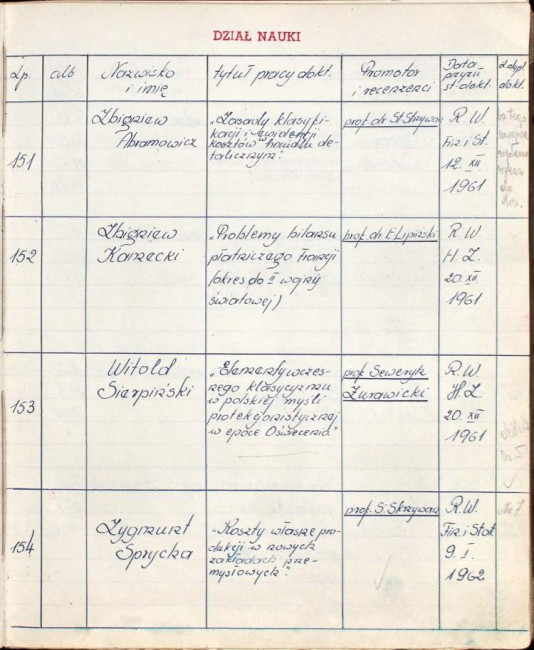 DZIAŁ NAUKI
Lp.
alb
Nazwisko
i imię
tytuł pracy dokt.
Promotor
i recenzenci
Data
przyzn.
st. dokt.
dokt.
151
Zbigniew
Abramowicz
„Zasady klasyfi-
kacji i ewidencji
kosztów handlu de-
talicznym".
prof. dr St. Skrzywan
R. W.
Fin. i St.
12. XII
1961
152
Zbigniew
Karzecki
„Problemy bilansu
płatniczego Francji
(okres do II wojny
światowej)
prof. dr E. Lipiński
R. W.
H. Z.
20. XII.
1961
153
Witold
Sierpiński
„Elementy wczes-
nego klasycyzmu
w polskiej myśli
protekcjonistycznej
w epoce Oświecenia"
prof. Seweryn
Żurawicki
R. W.
H. Z.
20. XII
1961
154
Zygmunt
Sprycha
„Koszty własne pro-
dukcji w nowych
zakładach prze-
mysłowych".
prof. S. Skrzywan
R. W.
Fin. i Stat.
9. I.
1962